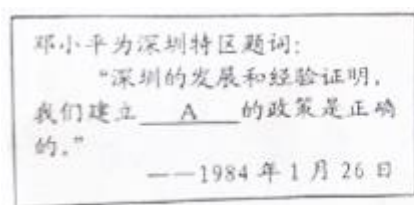 邓小平为深圳特区题词：
“深圳的发展和经验证明，
我们建立 A 的政策是正确
的。”
——1984 年 1 月 26 日